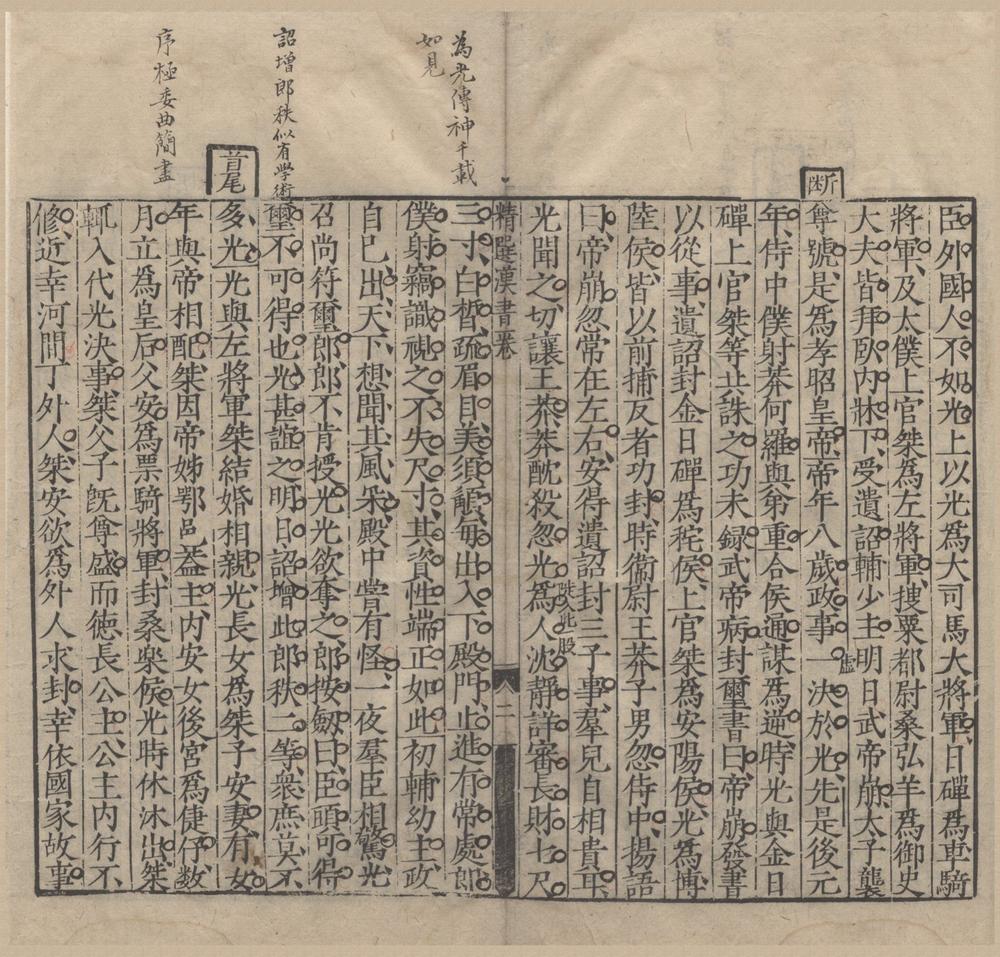 断
臣外國人不如光上以光爲大司馬大將軍日磾爲車騎
將軍及太僕上官桀爲左將軍搜粟都尉桑弘羊爲御史
大夫皆拜臥內牀下受遺詔輔少主明日武帝崩太子襲
尊號是爲孝昭皇帝帝年八歲政事一決於光先是後元
虛
年侍中僕射莽何羅與弟重合侯通謀爲逆時光與金日
磾上官桀等共誅之功未録武帝病封璽書曰帝崩發書
以從事遺詔封金日磾爲秺侯上官桀爲安陽侯光爲博
陸侯皆以前捕反者功封時衞尉王莽子男忽侍中揚語
曰帝崩忽常在左右安得遺詔封三子事羣兒自相貴耳
光聞之切讓王莽莽酖殺忽光爲人沈靜詳審長財七尺
精選漢書卷
八
二
爲光傳神千載
如見
三寸白晳疏眉目美須䫇每出入下殿門止進有常處郎
僕射竊識視之不失尺寸其資性端正如此初輔幼主政
自己出天下想聞其風采殿中嘗有怪一夜羣臣相驚光
召尚符璽郎郎不肯授光光欲奪之郎按劒曰臣頭可得
詔增郎秩似有學術
璽不可得也光甚誼之明日詔增此郎秩二等衆庶莫不
首尾
多光光與左將軍桀結婚相親光長女爲桀子安妻有女
年與帝相配桀因帝姊鄂邑蓋主內安女後宮爲倢伃數
序極委曲簡盡
月立爲皇后父安爲票騎將軍封桑樂侯光時休沐出桀
輒入代光決事桀父子既尊盛而德長公主公主內行不
修近幸河間丁外人桀安欲爲外人求封幸依國家故事